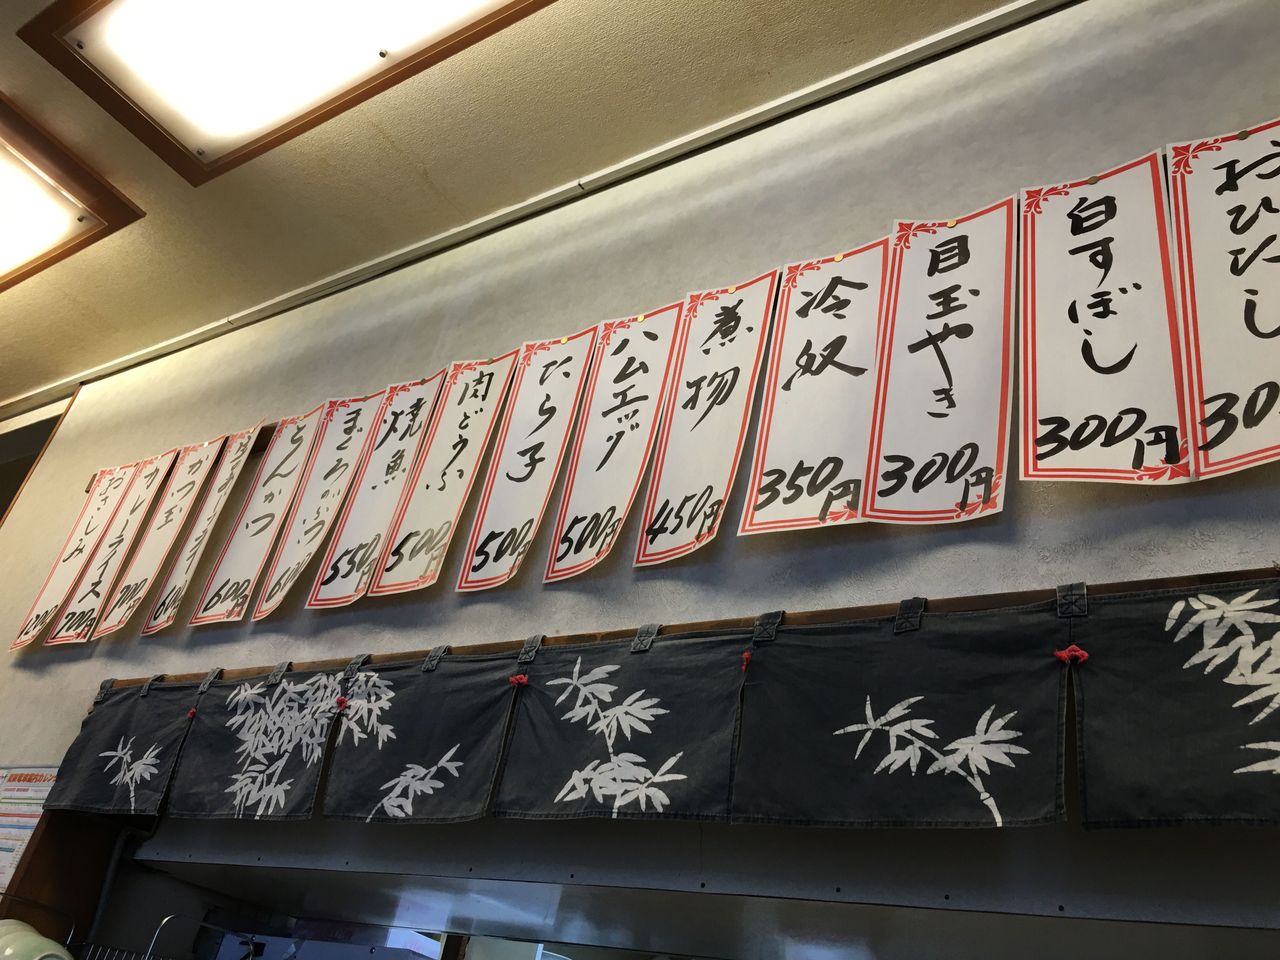 おひたし
30
白すぼし
300円
目玉やき
300円
冷奴
350円
煮物
450円
ハムエッグ
500円
たら子
500円
肉どうふ
500円
焼魚
550円
まぐろぶつ
600
とんかつ
600円
600円
かつ玉
700円
カレーライス
700円
おさしみ